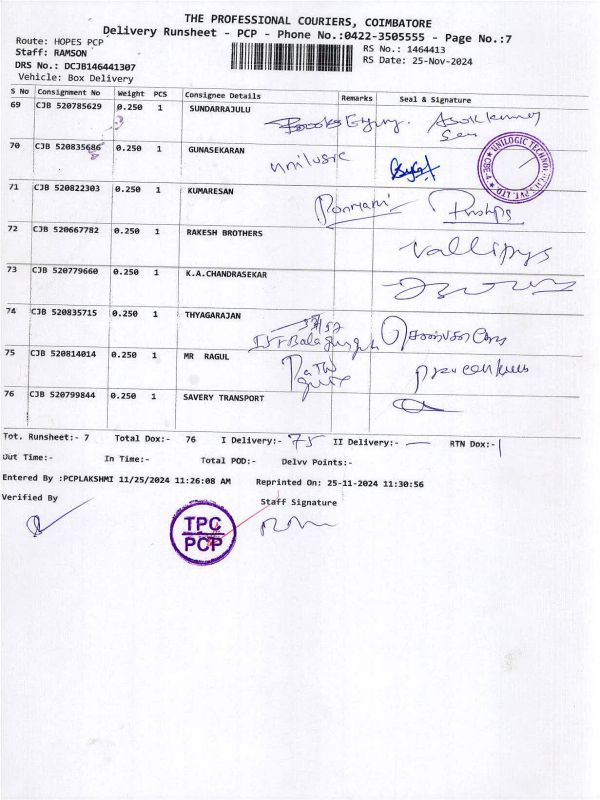 THE PROFESSIONAL COURIERS, COIMBATORE
Delivery Runsheet - PCP - Phone No.:0422-3505555 - Page No.:7
Route: HOPES PCP
RS No.: 1464413
Staff: RAMSON
RS Date: 25-Nov-2024
DRS No.: DCJB146441307
Vehicle: Box Delivery
S No Consignment No Weight PCS Consignee Details Remarks Seal & Signature
69 CJB 520785629 0.250 1 SUNDARRAJULU
70 CJB 520835686 0.250 1 GUNASEKARAN
UNILOGIC TECHNO
71 CJB 520822303 0.250 1 KUMARESAN
72 CJB 520667782 0.250 1 RAKESH BROTHERS
73 CJB 520779660 0.250 1 K.A.CHANDRASEKAR
74 CJB 520835715 0.250 1 THYAGARAJAN
75 CJB 520814014 0.250 1 MR RAGUL
76 CJB 520799844 0.250 1 SAVERY TRANSPORT
Tot. Runsheet:- 7 Total Dox:- 76 I Delivery:- 75 II Delivery:- — RTN Dox:- 1
Out Time:- In Time:- Total POD:- Delvv Points:-
Entered By :PCPLAKSHMI 11/25/2024 11:26:08 AM Reprinted On: 25-11-2024 11:30:56
Verified By Staff Signature
TPC
PCP